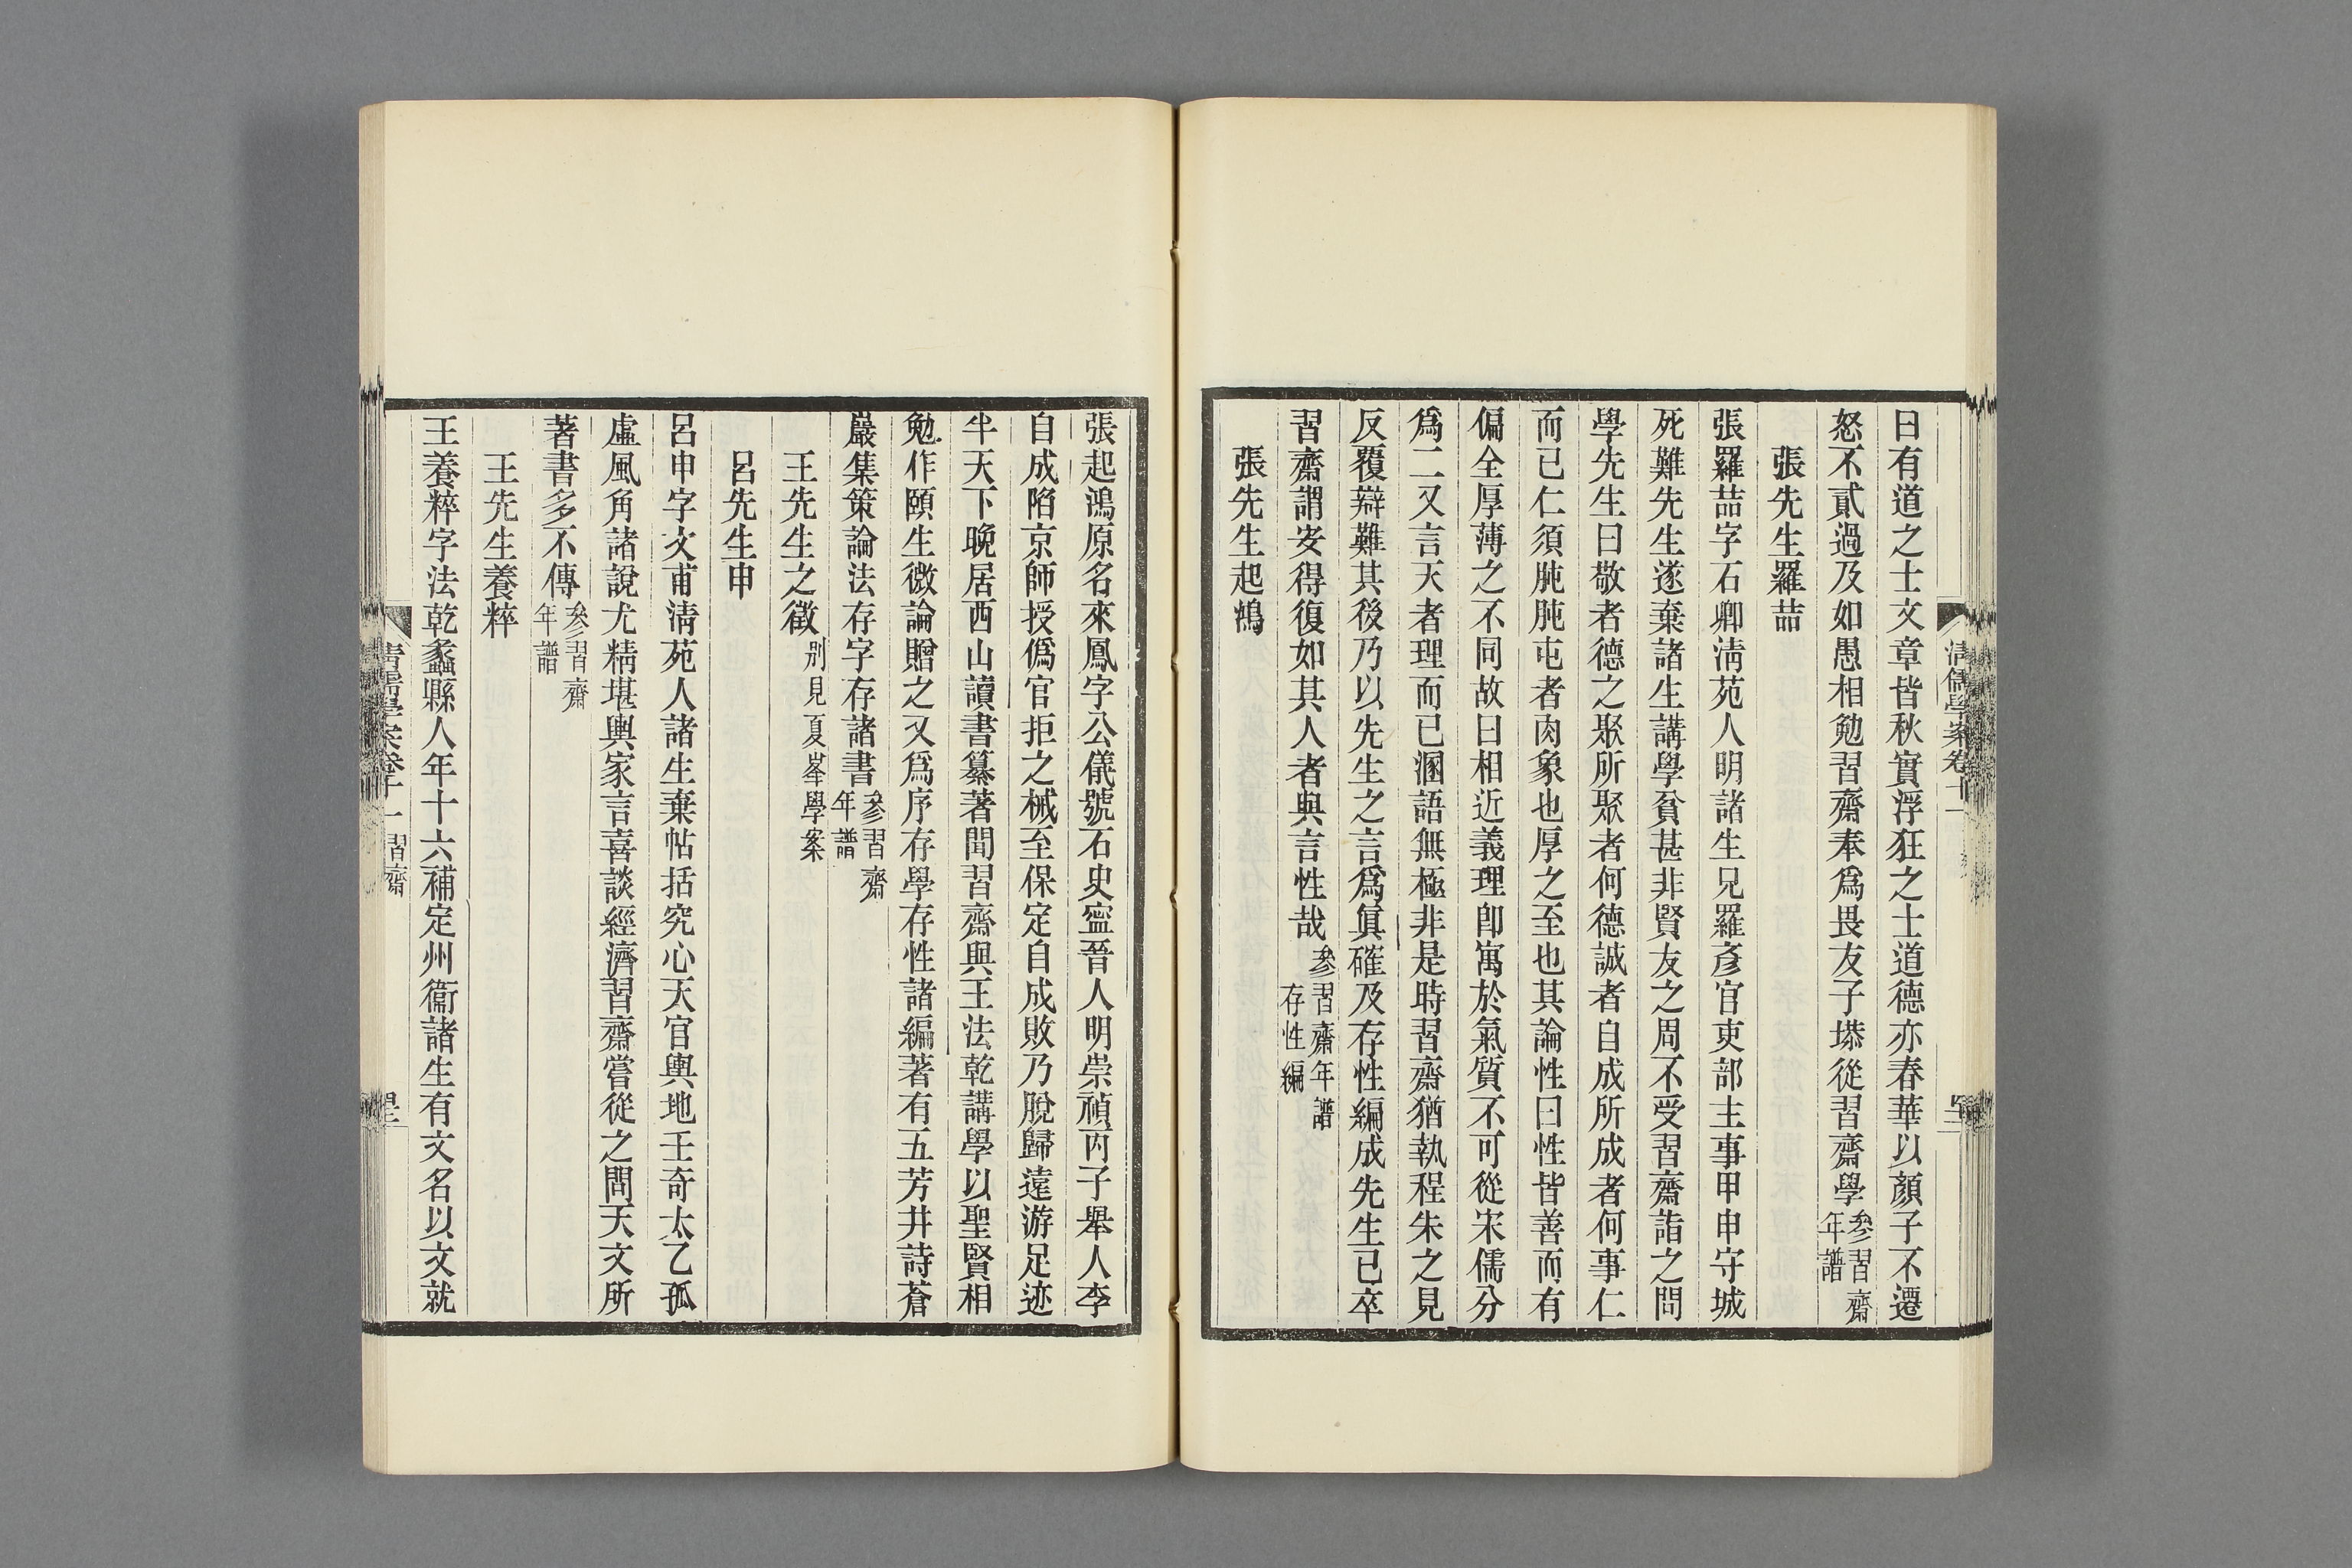 曰有道之士文章皆秋實浮狂之士道德亦春華以顏子不遷
怒不貳過及如愚相勉習齋奉爲畏友子㙺從習齋學參習齋年譜
張先生羅喆
張羅喆字石卿淸苑人明諸生兄羅彥官吏部主事甲申守城
死難先生遂棄諸生講學貧甚非賢友之周不受習齋詣之問
學先生曰敬者德之聚所聚者何德誠者自成所成者何事仁
而已仁須肫肫屯者肉象也厚之至也其論性曰性皆善而有
偏全厚薄之不同故曰相近義理卽寓於氣質不可從宋儒分
爲二又言天者理而已溷語無極非是時習齋猶執程朱之見
反覆辯難其後乃以先生之言爲眞確及存性編成先生已卒
習齋謂安得復如其人者與言性哉參習齋年譜存性編
張先生起鴻
張起鴻原名來鳳字公儀號石史寍晉人明崇禎丙子舉人李
自成陷京師授僞官拒之械至保定自成敗乃脫歸遠游足迹
半天下晚居西山讀書纂著聞習齋與王法乾講學以聖賢相
勉作頤生微論贈之又爲序存學存性諸編著有五芳井詩蒼
巖集策論法存字存諸書參習齋年譜
王先生之徵別見夏峯學案
呂先生申
呂申字文甫淸苑人諸生棄帖括究心天官輿地壬奇太乙孤
虛風角諸說尤精堪輿家言喜談經濟習齋嘗從之問天文所
著書多不傳參習齋年譜
王先生養粹
王養粹字法乾蠡縣人年十六補定州衞諸生有文名以文就
淸儒學案卷十一
習齋